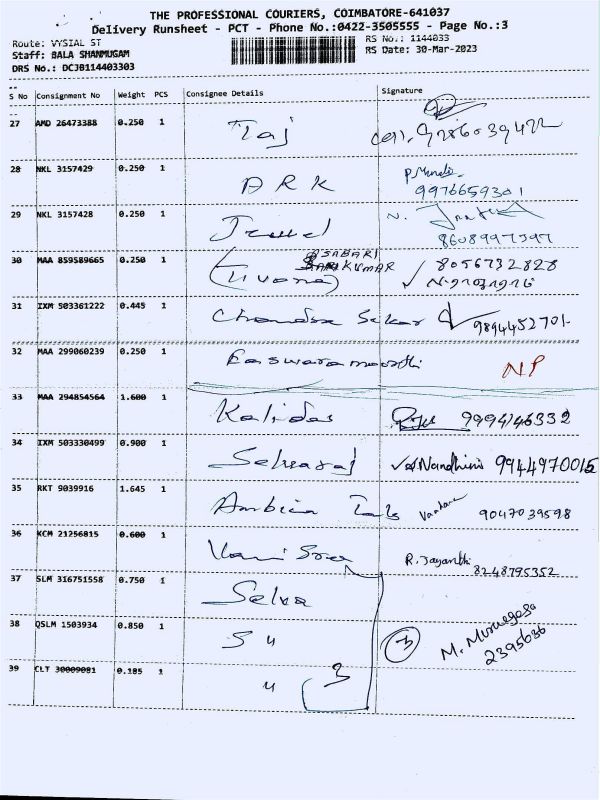 THE PROFESSIONAL COURIERS, COIMBATORE-641037
Delivery Runsheet - PCT - Phone No.:0422-3505555 - Page No.:3
Route: VYSIAL ST
RS No.: 1144033
Staff: BALA SHANMUGAM
RS Date: 30-Mar-2023
DRS No.: DCJ0114403303
S No Consignment No Weight PCS Consignee Details Signature
27 AMD 26473388 0.250 1 Raj 9286039422
28 NKL 3157429 0.250 1 A R K
9976659301
29 NKL 3157428 0.250 1 Jewel N.
8608997397
SABARI
30 MAA 859589665 0.250 1 KUMAR 8056732828
31 IXM 503361222 0.445 1 Chandra Sekar 9894452701
32 MAA 299060239 0.250 1 Easwaramoorthi NP
33 MAA 294854564 1.600 1 Kalidas 9994146332
34 IXM 503330499 0.900 1 Selvaraj Nandhini 9944970015
35 RKT 9039916 1.645 1 Ambica 9047039598
36 KCM 21256815 0.600 1 R. Jayanthi
8248795352
37 SLM 316751558 0.750 1 Selva
38 QSLM 1503934 0.850 1 S 4 3 M. Murugesa
2395636
39 CLT 30009081 0.185 1 4 3